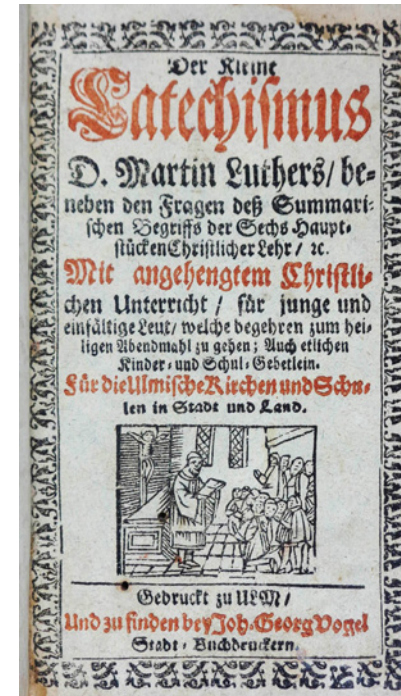 Der Kleine
Catechismus
D. Martin Luthers/ be-
neben den Fragen deß Summari-
schen Begriffs der Sechs Haupt-
stücken Christlicher Lehr / ꝛc.
Mit angehengtem Christli-
chen Unterricht / für junge und
einfältige Leut/ welche begehren zum hei-
ligen Abendmahl zu gehen; Auch etlichen
Kinder- und Schul-Gebetlein.
Für die Ulmische Kirchen und Schu-
len in Stadt und Land.
Gedruckt zu ULM /
Und zu finden bey Joh. Georg Vogel
Stadt-Buchdruckern.